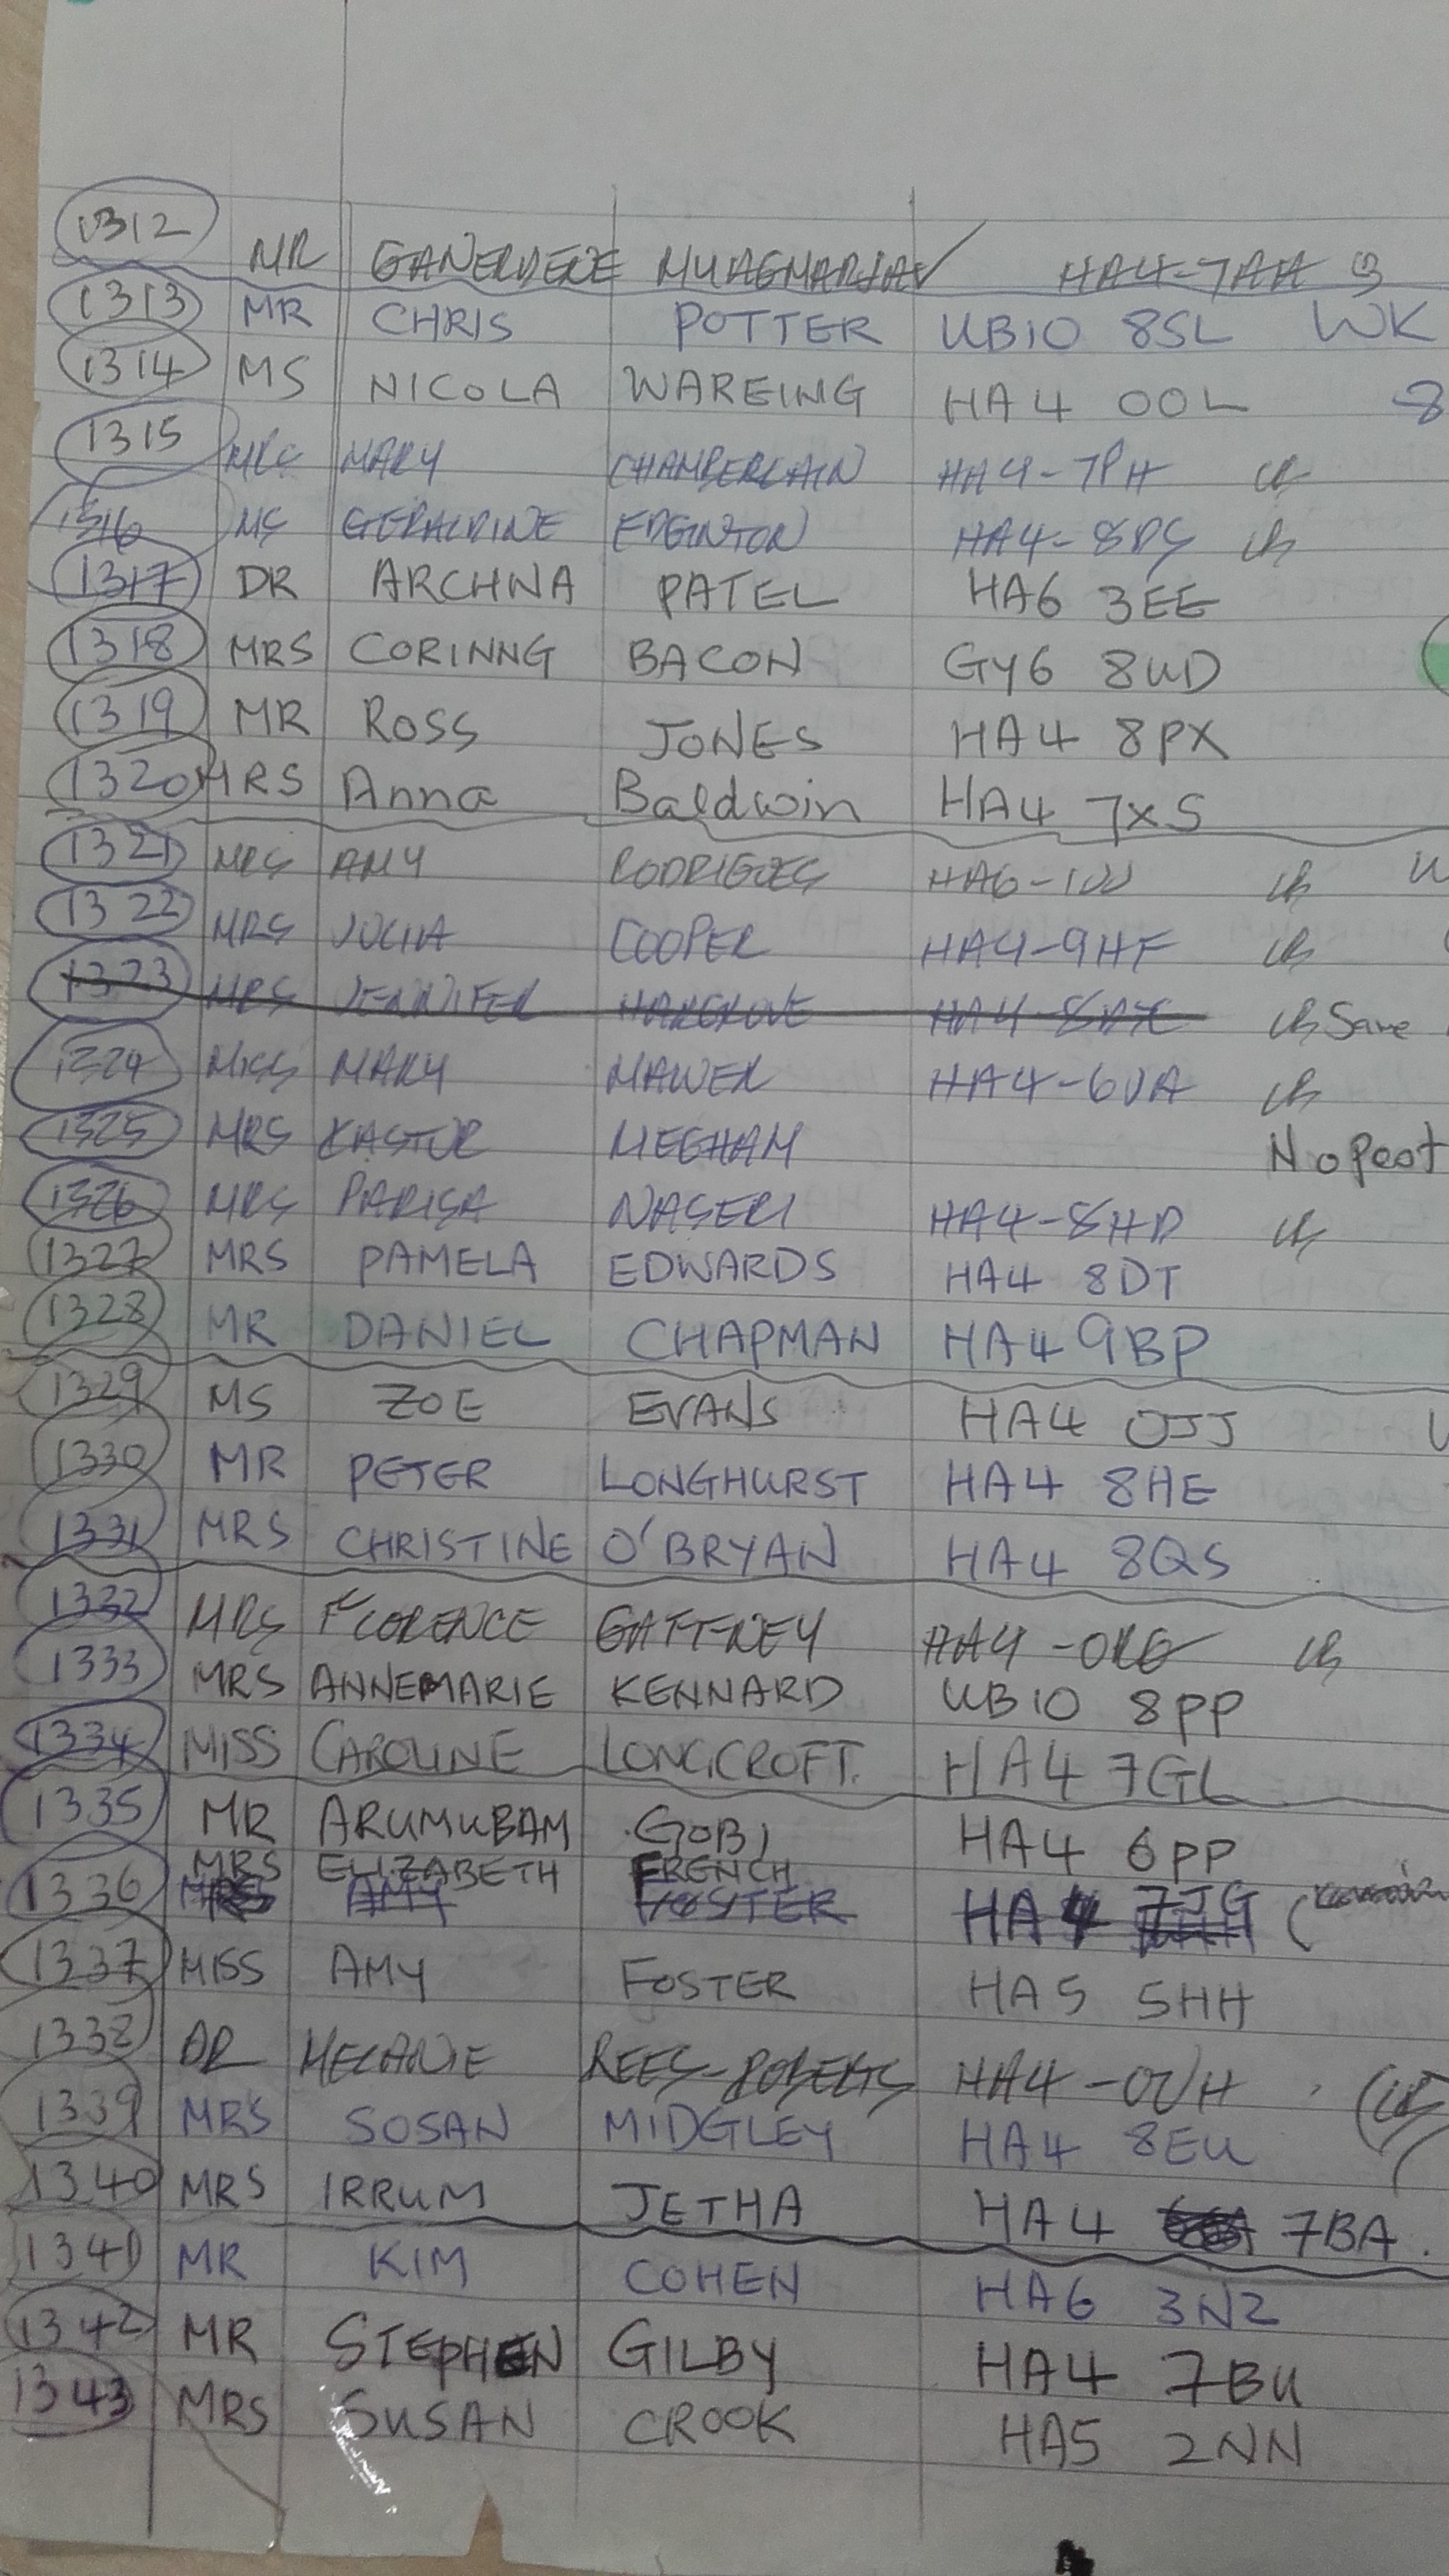 1312 MR GANERDENE HA4-7AA
1313 MR CHRIS POTTER UB10 8SL WK
1314 MS NICOLA WAREING HA4 0OL 8
1315 MRS MARY CHAMBERLAIN HA4-7PH
1316 MS GERALDINE EDGINTON HA4-8DS
1317 DR ARCHNA PATEL HA6 3EE
1318 MRS CORINNG BACON GY6 8UD
1319 MR ROSS JONES HA4 8PX
1320 MRS Anna Baldwin HA4 7XS
1321 MRS AMY RODRIGUES HA6-1UU
1322 MRS JULIA COOPER HA4-9HF
1323 MRS JENNIFER HARGROVE Save
1324 MISS MARY MAWER HA4-6UA
1325 MRS KASTUR MEGHAM No Post
1326 MRS PARISA NASERI HA4-8HD
1327 MRS PAMELA EDWARDS HA4 8DT
1328 MR DANIEL CHAPMAN HA4 9BP
1329 MS ZOE EVANS HA4 0JJ
1330 MR PETER LONGHURST HA4 8HE
1331 MRS CHRISTINE O'BRYAN HA4 8QS
1332 MRS FLORENCE GAFFNEY HA4-0RG
1333 MRS ANNEMARIE KENNARD UB10 8PP
1334 MISS CAROLINE LONGCROFT. HA4 7GL
1335 MR ARUMUBAM GOBI HA4 6PP
1336 MRS ELIZABETH FRENCH HA4 7JG
MRS AMY FOSTER
1337 MISS AMY FOSTER HA5 5HH
1338 DR MELANIE REES-ROBERTS HA4-0UH
1339 MRS SOSAN MIDGLEY HA4 8EU
1340 MRS IRRUM JETHA HA4 7BA.
1341 MR KIM COHEN HA6 3NZ
1342 MR STEPHEN GILBY HA4 7BU
1343 MRS SUSAN CROOK HA5 2NN